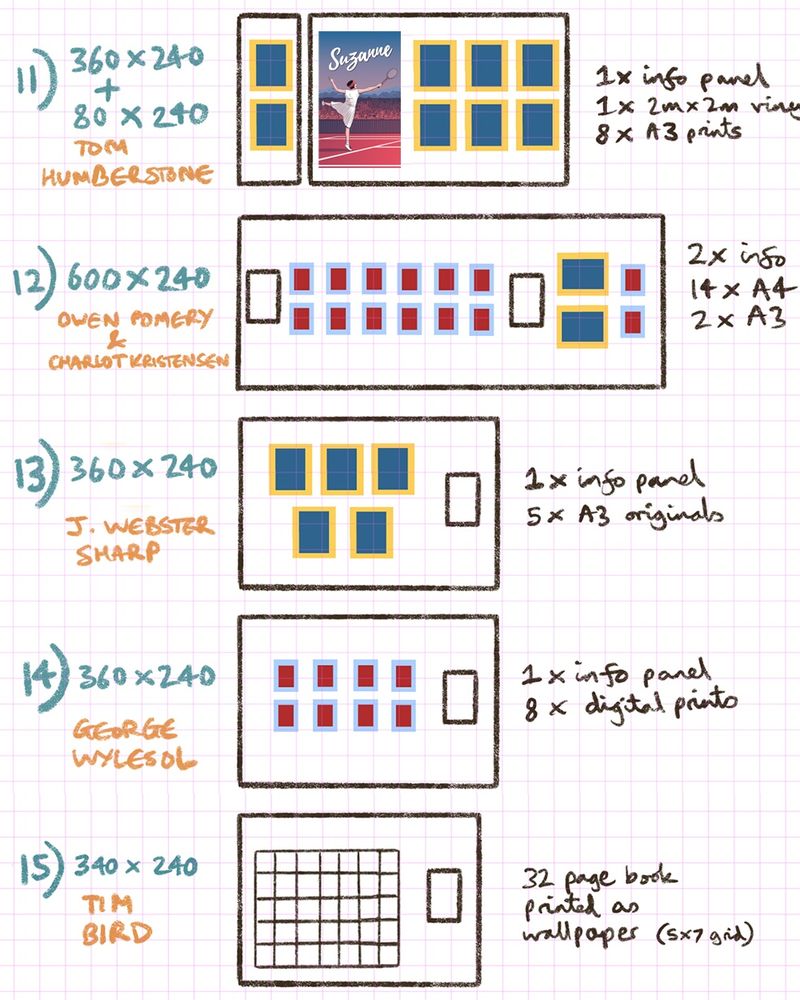 11) 360 x 240
+
80 x 240
TOM
HUMBERSTONE
Suzanne
1x info panel
1x 2m x 2m viny
8x A3 prints
12) 600 x 240
OWEN POMERY
&
CHARLOT KRISTENSEN
2x info
14 x A4
2 x A3
13) 360 x 240
J. WEBSTER
SHARP
1x info panel
5x A3 originals
14) 360 x 240
GEORGE
WYLESOL
1x info panel
8x digital prints
15) 340 x 240
TIM
BIRD
32 page book
printed as
wallpaper (5x7 grid)